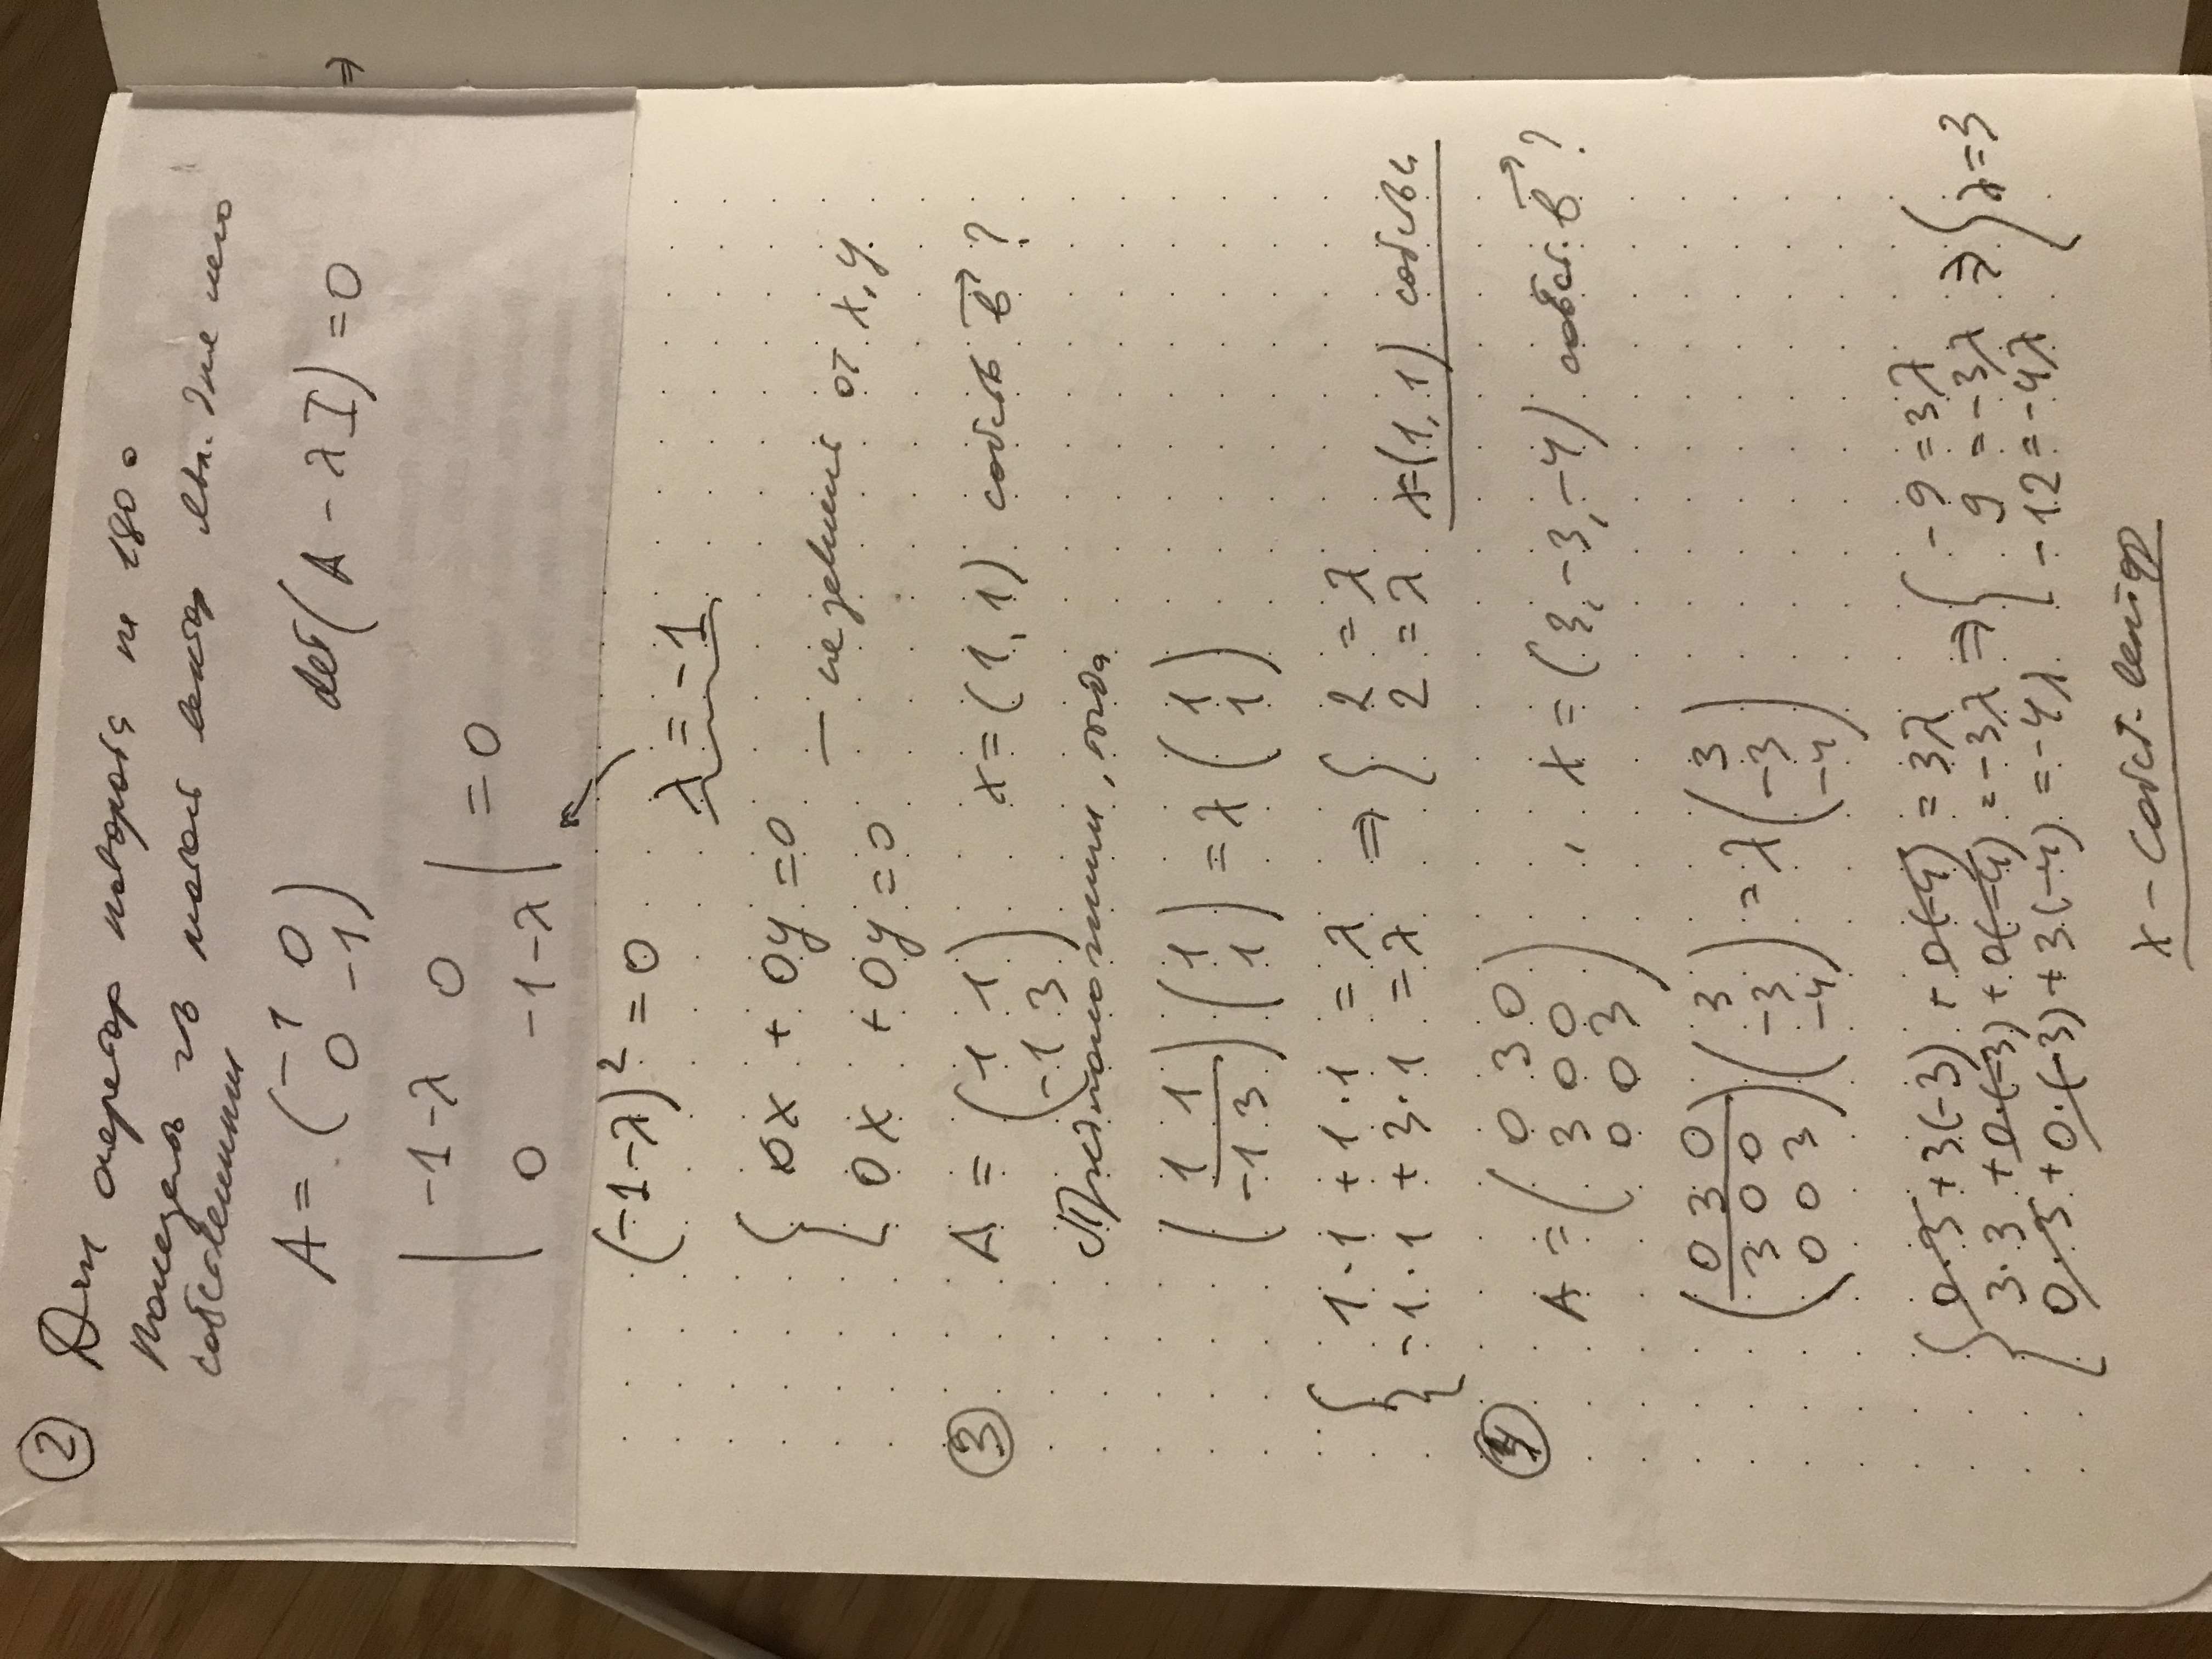 ② Дан оператор поворота на 180°
Показать что любой вектор явл. для него
собственным
A = (-1 0
0 -1) det(A - λI) = 0
⇒
| -1-λ 0
0 -1-λ | = 0
(-1-λ)² = 0
λ = -1
{ 0x + 0y = 0
0x + 0y = 0 — не зависит от x, y.
③ A = (1 1
-1 3) x = (1, 1) собств в⃗ ?
Предположим, тогда
(1 1
-1 3) (1
1) = λ (1
1)
{ 1·1 + 1·1 = λ ⇒ { 2 = λ
-1·1 + 3·1 = λ 2 = λ x=(1, 1) собств
④ A = (0 3 0
3 0 0
0 0 3) , x = (3, -3, -4) собст. в⃗ ?
(0 3 0
3 0 0
0 0 3) (3
-3
-4) = λ (3
-3
-4)
{ 0·3 + 3(-3) + 0(-4) = 3λ ⇒ { -9 = 3λ ⇒ { λ = 3
3·3 + 0·(-3) + 0(-4) = -3λ 9 = -3λ
0·3 + 0·(-3) + 3(-4) = -4λ -12 = -4λ
x - собст. вектор